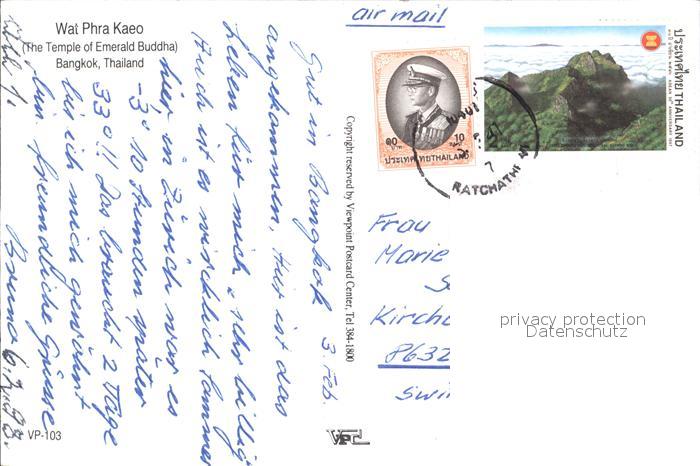 Wat Phra Kaeo
(The Temple of Emerald Buddha)
Bangkok, Thailand
air mail
Gut in Bangkok 3 Feb.
angekommen, Hier ist das
Leben für mich sehr billig
Auch ist es wirklich Sommer
hier in Zürich war es
-3° 10 Stunden später
33°!! Das braucht 2 Tage
bis ich mich gewöhnt
bin freundliche Grüsse
Bruno
VP-103
Copyright reserved by Viewpoint Postcard Center, Tel 384-1800
VPC
๑๐ บาท 10
ประเทศไทย THAILAND
ประเทศไทย THAILAND
RATCHATHEWI
7
Frau
Marie
Kirch
8632
Swi
privacy protection
Datenschutz